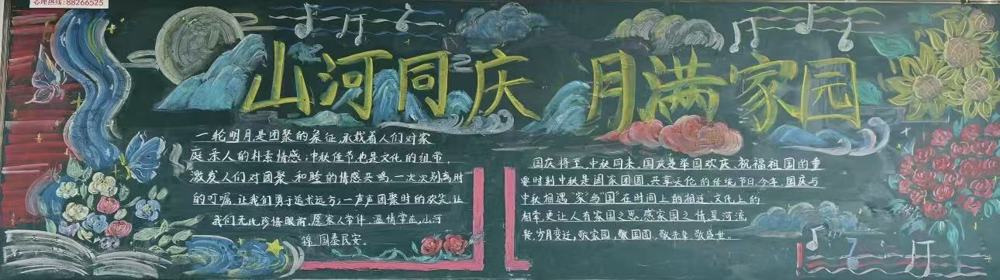 心理热线:88266525
山河同庆 月满家园
一轮明月是团聚的象征 承载着人们对家
庭 亲人的朴素情感,中秋佳节也是文化的纽带,
激发人们对团聚 和睦的情感共鸣 一次次别离时
的叮嘱 让我们勇于追求远方,一声声团聚时的欢笑 让
我们无比珍惜眼前 愿家人安康 温情常在,山河
锦 国泰民安。
国庆将至 中秋同来 国庆是举国欢庆 祝福祖国的重
要时刻 中秋是阖家团圆 共享天伦的传统节日 今年 国庆与
中秋相遇 "家"与"国"在时间上的相近 文化上的
相牵 更让人有家国之思 感家国之情 星河流
转,岁月变迁,敬家园,敬国圆,敬先辈 敬盛世。